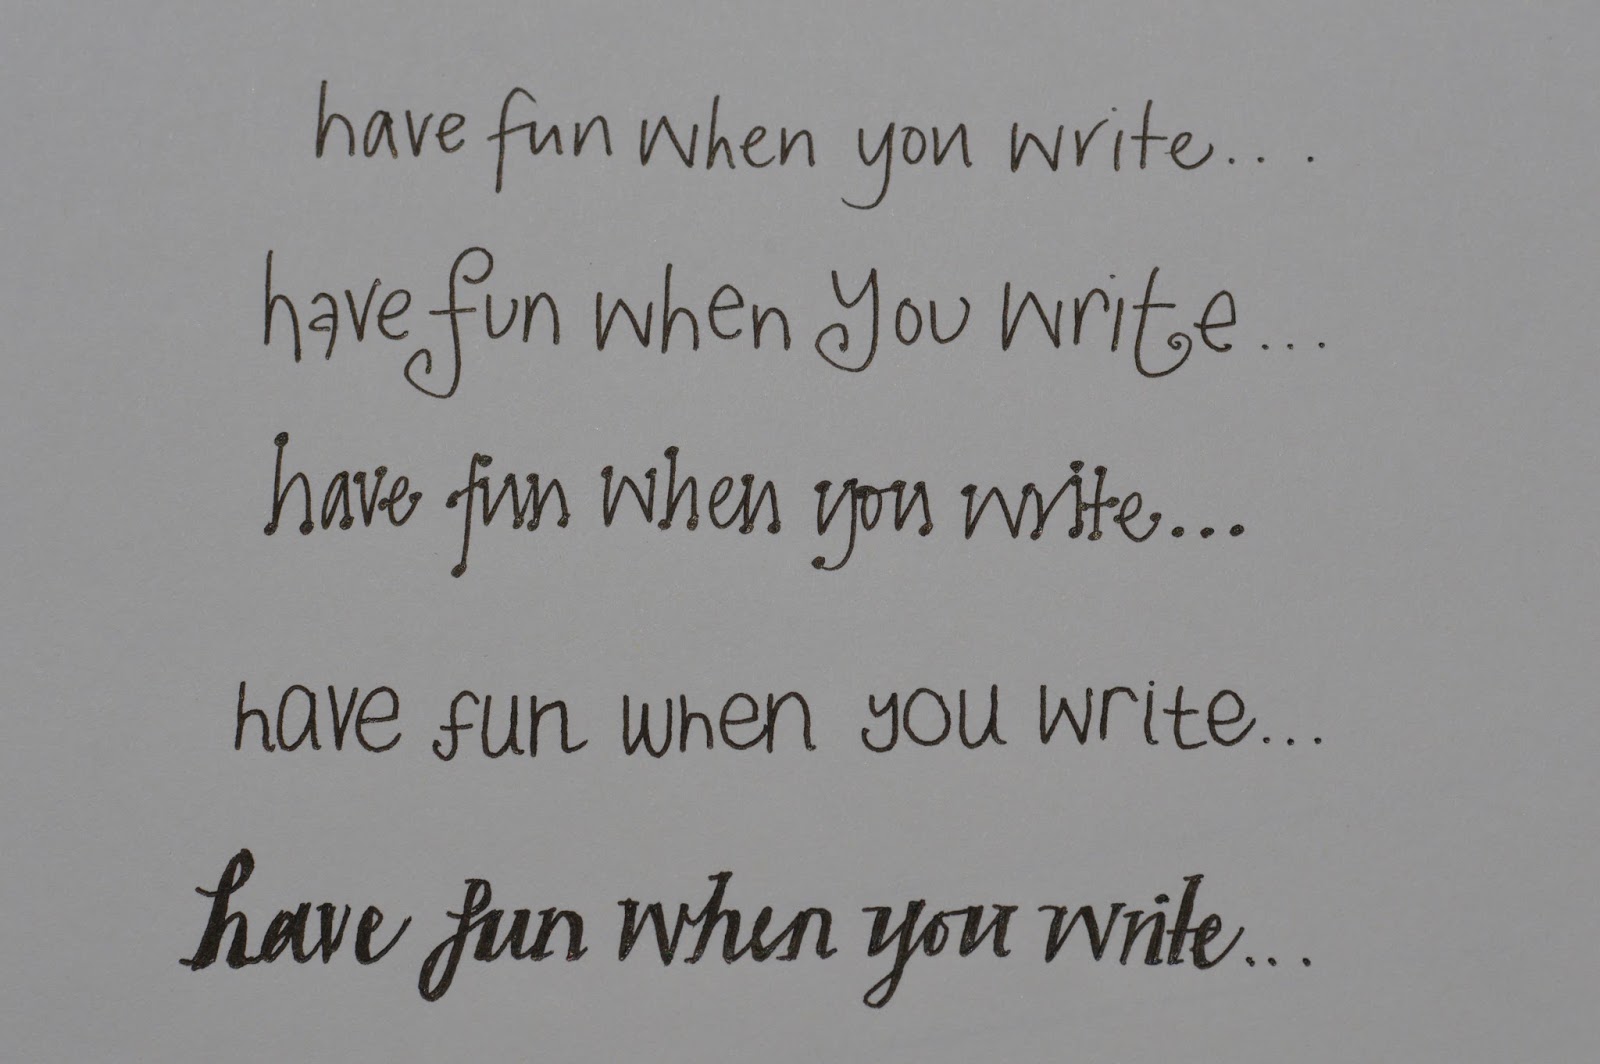 have fun when you write...
have fun when you write...
have fun when you write...
have fun when you write...
have fun when you write...